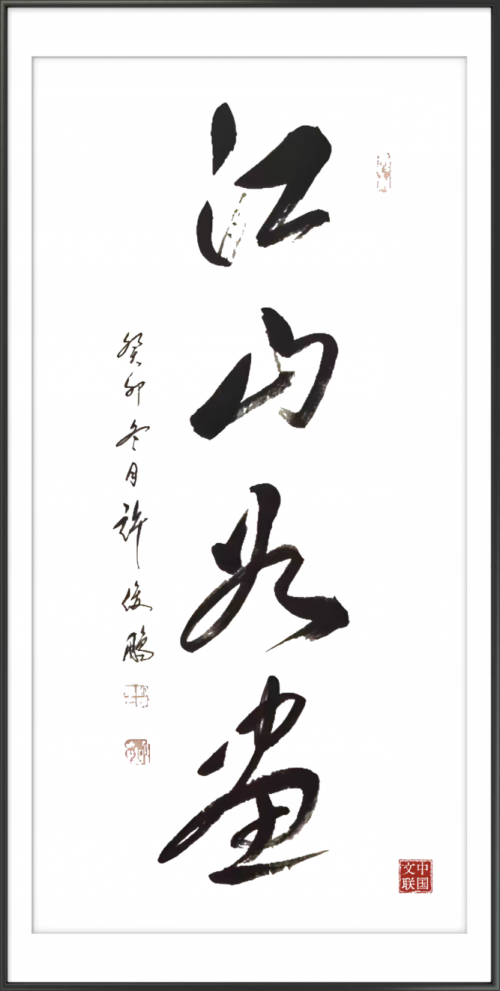 江山如画
癸卯冬月许俊鹏
中国
文联